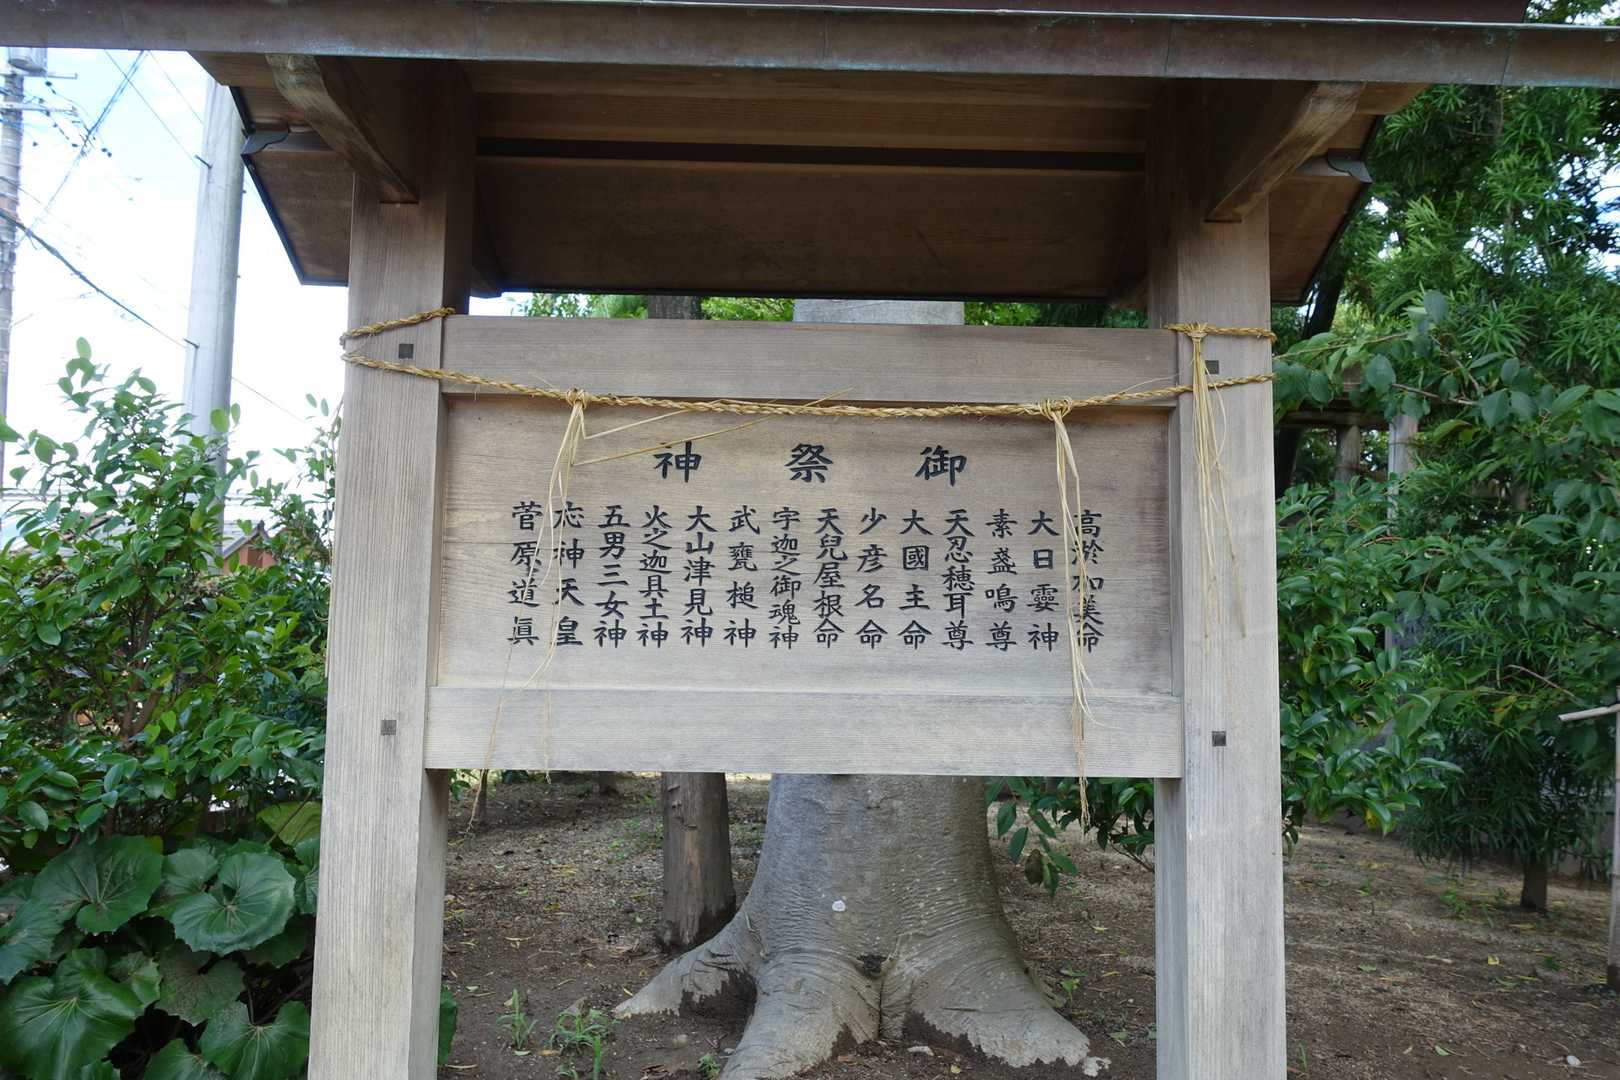 御祭神
高淤加美命
大日孁神
素盞鳴尊
天忍穗耳尊
大國主命
少彦名命
天兒屋根命
宇迦之御魂神
武甕槌神
大山津見神
火之迦具土神
五男三女神
応神天皇
菅原道眞